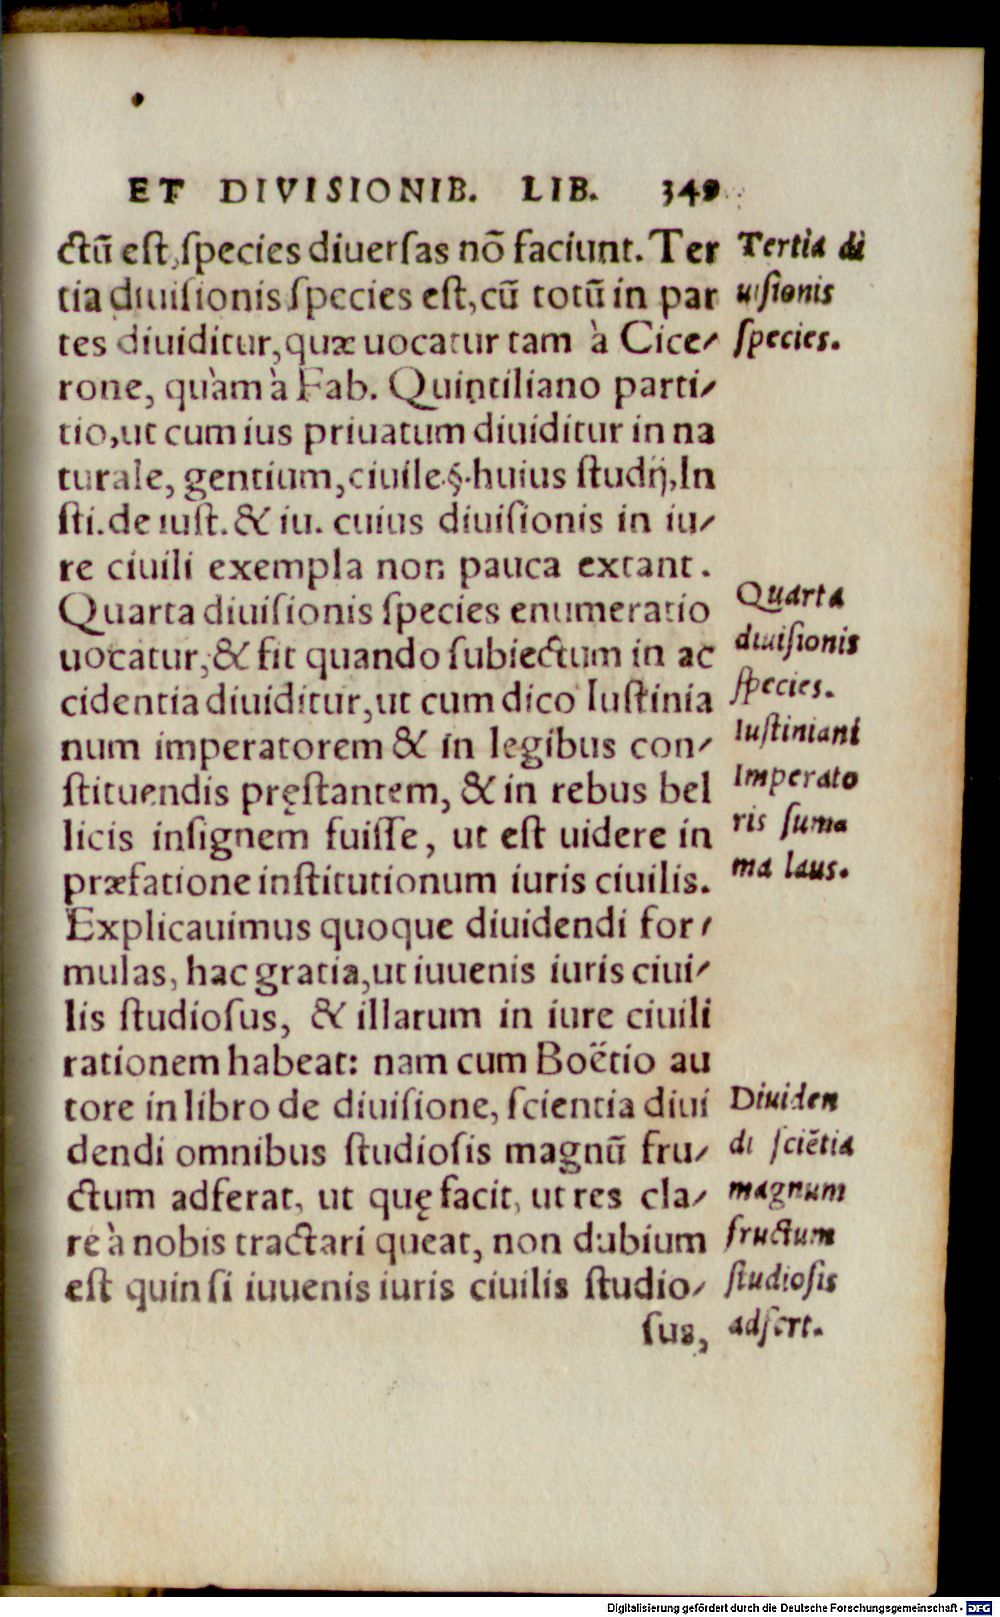 ET DIVISIONIB. LIB. 349
ctū est, species diuersas nō faciunt. Ter
tia diuisionis species est, cū totū in par
tes diuiditur, quæ uocatur tam à Cice-
rone, quàm à Fab. Quintiliano parti-
tio, ut cum ius priuatum diuiditur in na
turale, gentium, ciuile. §. huius studij, In
sti. de iust. & iu. cuius diuisionis in iu-
re ciuili exempla non pauca extant.
Quarta diuisionis species enumeratio
uocatur, & fit quando subiectum in ac
cidentia diuiditur, ut cum dico Iustinia
num imperatorem & in legibus con-
stituendis pręstantem, & in rebus bel
licis insignem fuisse, ut est uidere in
præfatione institutionum iuris ciuilis.
Explicauimus quoque diuidendi for-
mulas, hac gratia, ut iuuenis iuris ciui-
lis studiosus, & illarum in iure ciuili
rationem habeat: nam cum Boëtio au
tore in libro de diuisione, scientia diui
dendi omnibus studiosis magnū fru-
ctum adferat, ut quę facit, ut res cla-
re à nobis tractari queat, non dubium
est quin si iuuenis iuris ciuilis studio-
sus,
Tertia di
uisionis
species.
Quarta
diuisionis
species.
Iustiniani
Imperato
ris suma
ma laus.
Diuiden
di sciētia
magnum
fructum
studiosis
adfert.
Digitalisierung gefördert durch die Deutsche Forschungsgemeinschaft - DFG